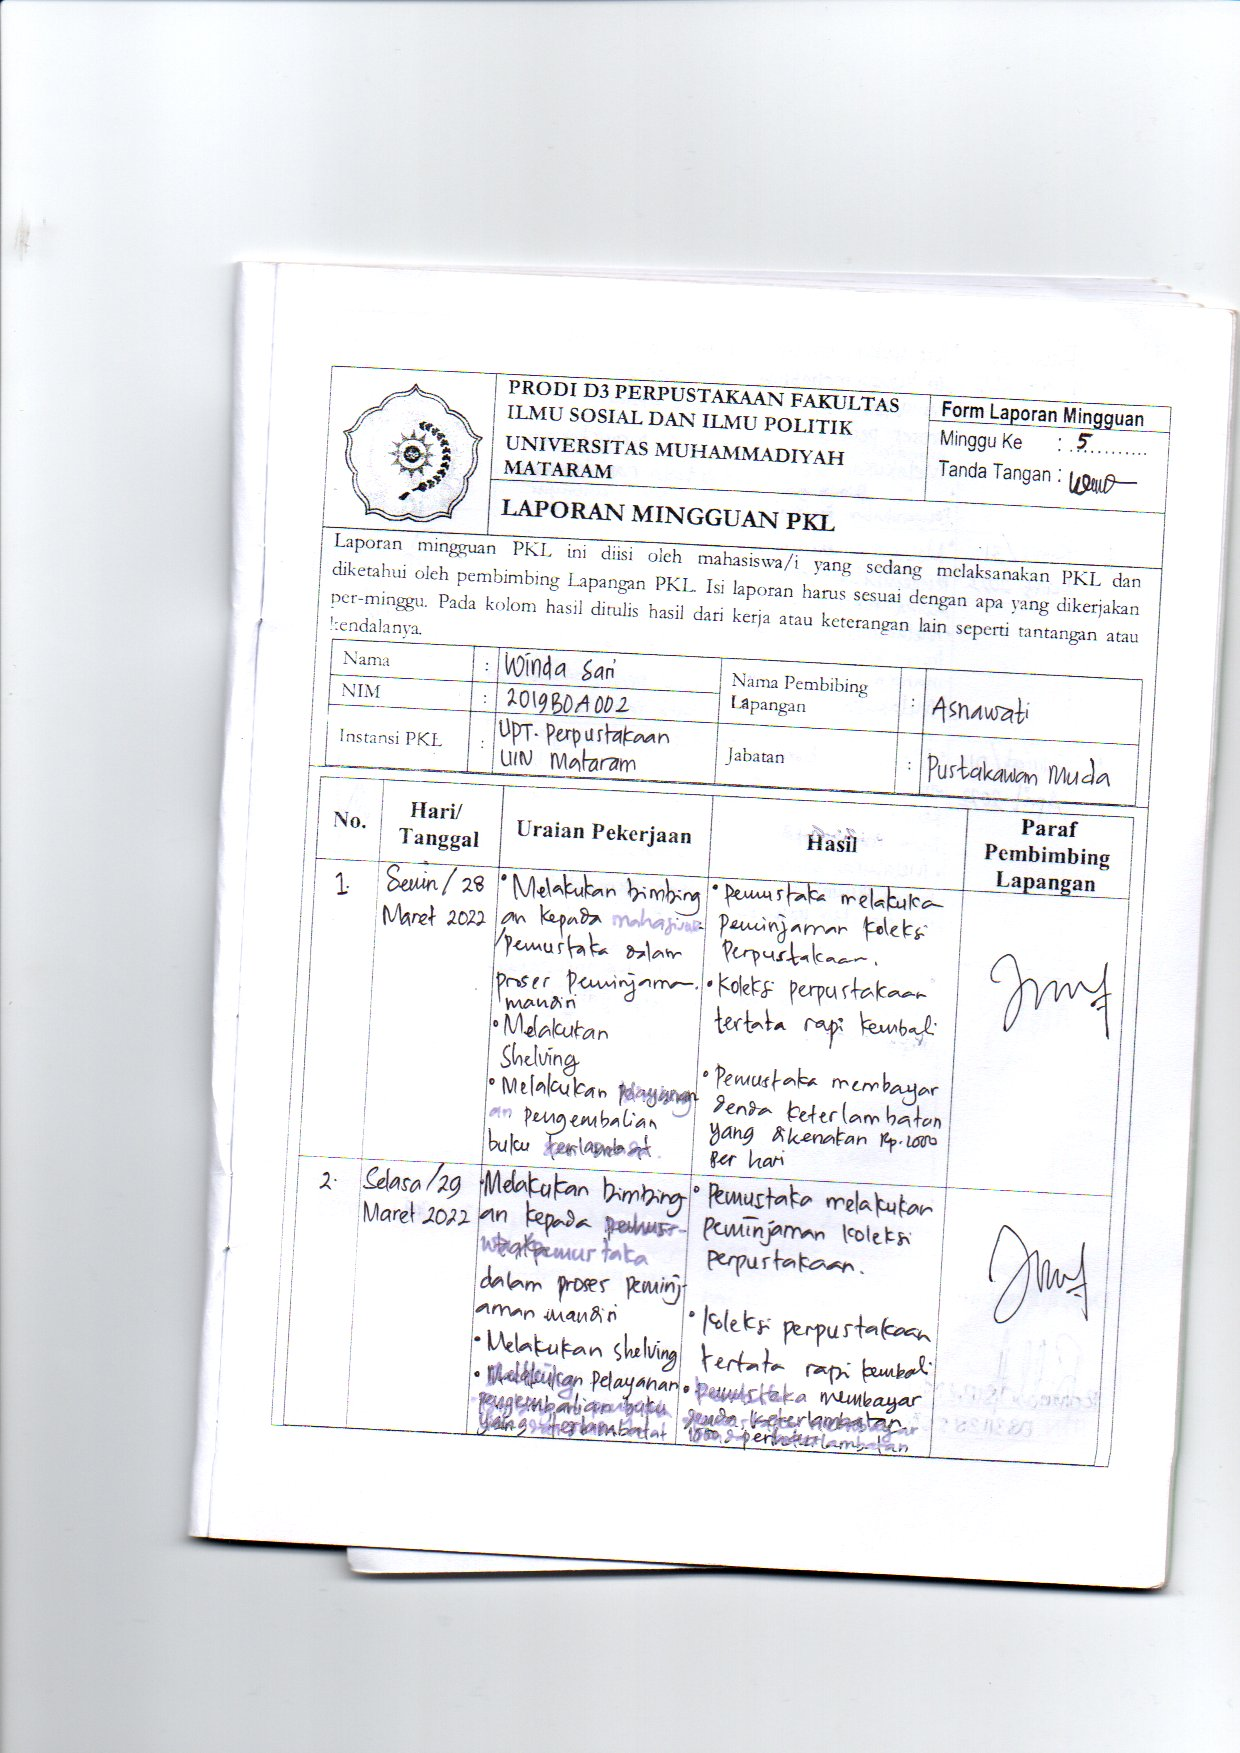 PRODI D3 PERPUSTAKAAN FAKULTAS
ILMU SOSIAL DAN ILMU POLITIK
UNIVERSITAS MUHAMMADIYAH
MATARAM
LAPORAN MINGGUAN PKL
Form Laporan Mingguan
Minggu Ke : 5
Tanda Tangan :
Laporan mingguan PKL ini diisi oleh mahasiswa/i yang sedang melaksanakan PKL dan
diketahui oleh pembimbing Lapangan PKL. Isi laporan harus sesuai dengan apa yang dikerjakan
per-minggu. Pada kolom hasil ditulis hasil dari kerja atau keterangan lain seperti tantangan atau
kendalanya.
Nama : Winda Sari
NIM : 2019B0A002
Instansi PKL : UPT. Perpustakaan
UIN Mataram
Nama Pembibing
Lapangan : Asnawati
Jabatan : Pustakawan Muda
No.
Hari/
Tanggal
Uraian Pekerjaan
Hasil
Paraf
Pembimbing
Lapangan
1.
Senin / 28
Maret 2022
• Melakukan bimbing
an kepada mahasiswa
/pemustaka dalam
proses Peminjaman
mandiri
• Melakukan
Shelving
• Melakukan
an pengembalian
buku terlambat.
• Pemustaka melakuka
Peminjaman Koleksi
Perpustakaan.
• Koleksi perpustakaan
tertata rapi kembali
• Pemustaka membayar
denda keterlambatan
yang dikenakan Rp. 1000
Per hari
2.
Selasa / 29
Maret 2022
• Melakukan bimbing
an kepada
pemustaka
dalam proses peminj-
aman mandiri
• Melakukan shelving
• Melakukan Pelayanan
pengembalian buku
yang terlambat
• Pemustaka melakukan
peminjaman koleksi
perpustakaan.
• Koleksi perpustakaan
tertata rapi kembali
• Pemustaka membayar
denda keterlambatan
1000